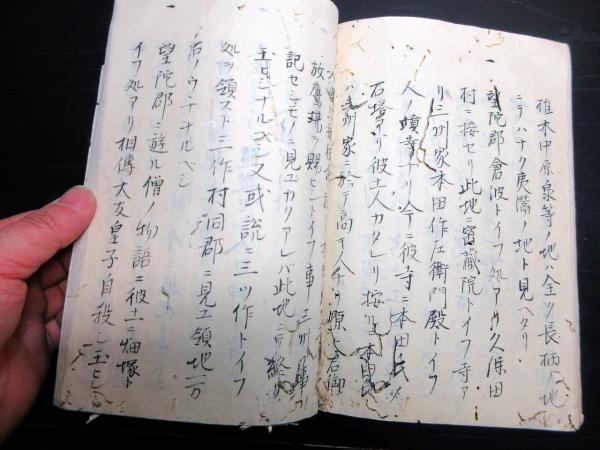 椎木中原泉等ノ地ハ全ク長柄ノ地
ニテハナク夷隔ノ地ト見ヘタリ
一望陀郡倉波トイフ処アリ久保田
村ニ接セリ此地ニ蔵院トイフ寺ア
リ三州家本田作左衛門殿トイフ
人ノ墳寺ナリ今ニ彼寺ニ本田氏ノ
石塔アリ彼土人カタレリ按ルニ本田
家ニ於テ高キノ人
放鷹場ヲ賜ヒシトイフ事
記セシモノニ見ユカクアレバ此地ニテ終
玉ヒシナルベシ又或説ニ三ツ作トイフ
処ヲ領スト三作村同郡ニ見ユ領地ノ一方
右ノウチナルベシ
一望陀郡ニ遊ル僧ノ物語ニ彼土ニ畑塚ト
イフ処アリ相傳大友皇子自殺シ玉ヒシ